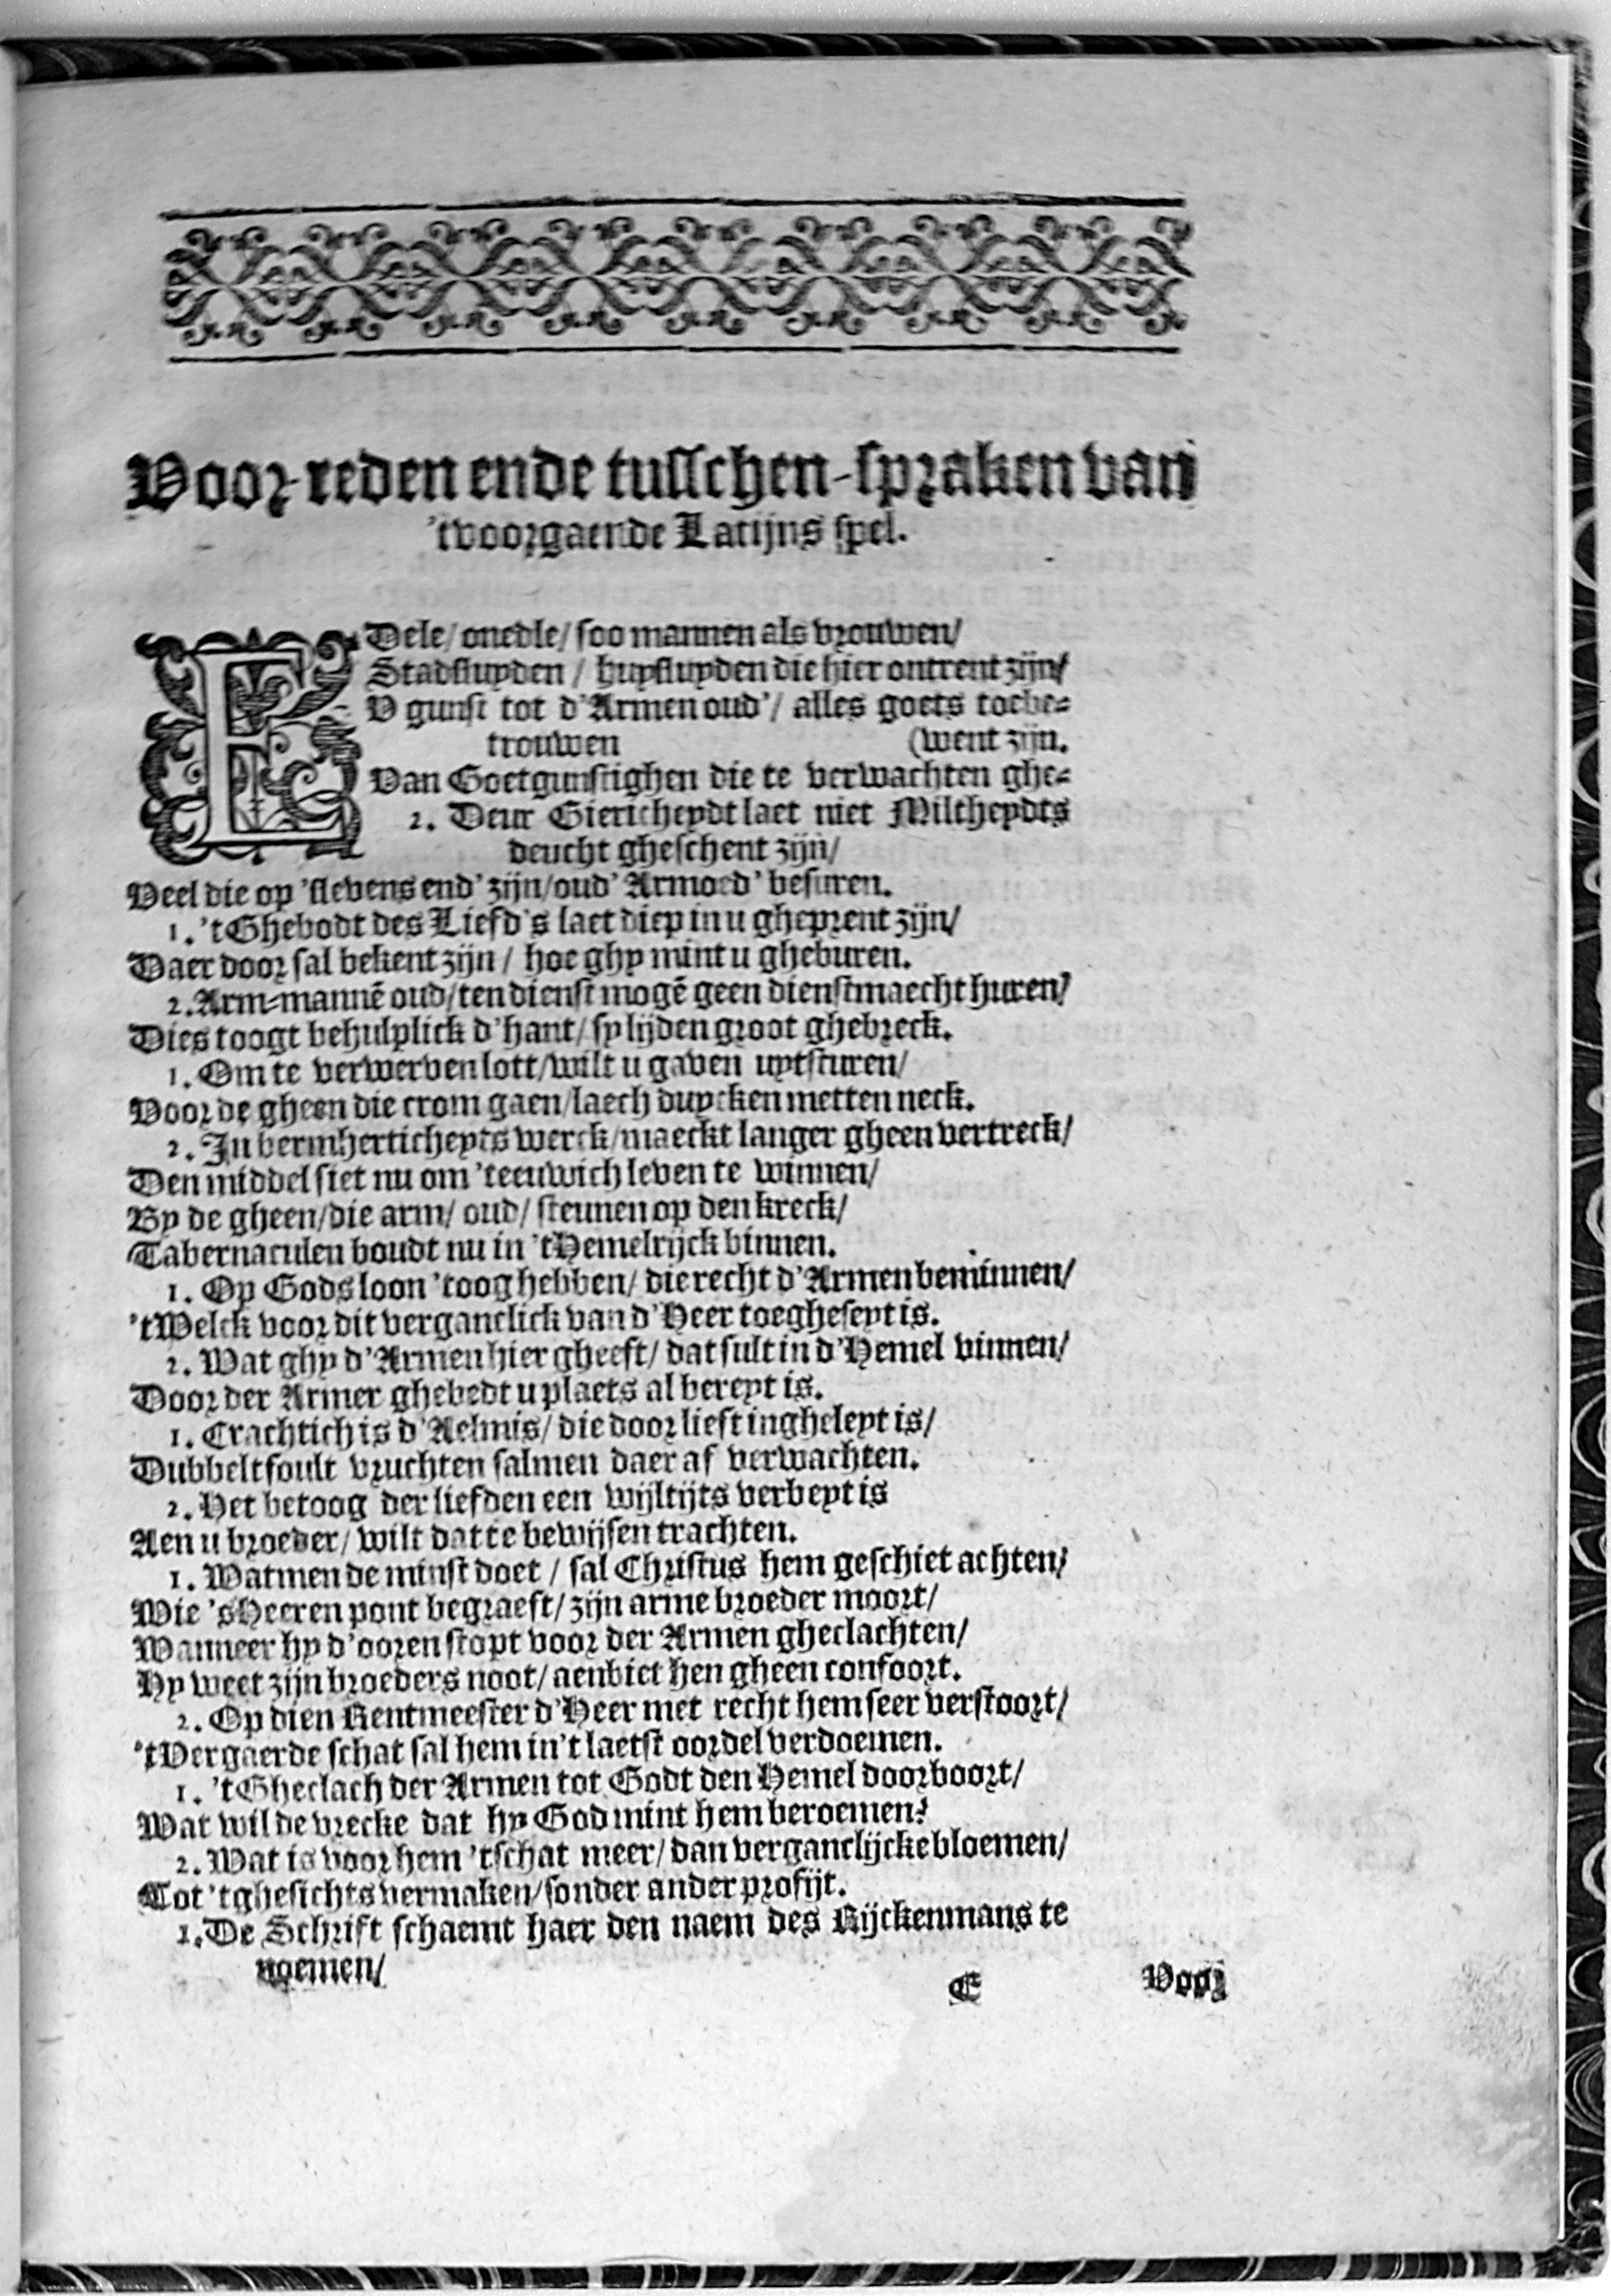 Voor-reden ende tusschen-spraken van
'tvoorgaende Latijns spel.
EDele/ onedle/ soo mannen als vrouwen/
Stadsluyden / huysluyden die hier ontrent zijn/
V gunst tot d'Armen oud'/ alles goets toebe-
trouwen (went zijn.
Van Goetgunstighen die te verwachten ghe-
2. Deur Giericheydt laet niet Miltheydts
deucht gheschent zijn/
Veel die op 'slevens end' zijn/oud' Armoed' besuren.
1. 't Ghebodt des Liefd's laet diep in u gheprent zijn/
Daer door sal bekent zijn / hoe ghy mint u gheburen.
2. Arm-mannē oud/ten dienst mogē geen dienstmaecht huren/
Dies toogt behulplick d'hant/ sy lijden groot ghebreck.
1. Om te verwerven lott/wilt u gaven uytsturen/
Voor de gheen die crom gaen/laech duycken metten neck.
2. In bermherticheyts werck/maeckt langer gheen vertreck/
Den middel siet nu om 'teeuwich leven te winnen/
By de gheen/die arm/ oud/ steunen op den kreck/
Tabernaculen boudt nu in 'tHemelrijck binnen.
1. Op Gods loon 'toog hebben/ die recht d'Armen beminnen/
'tWelck voor dit verganclick van d'Heer toegheseyt is.
2. Wat ghy d'Armen hier gheeft/ dat sult in d'Hemel vinnen/
Door der Armer ghebedt u plaets al bereyt is.
1. Crachtich is d'Aelmis/ die door lieft ingheleyt is/
Dubbeltfoult vruchten salmen daer af verwachten.
2. Het betoog der liefden een wijltijts verbeyt is
Aen u broeder/ wilt dat te bewijsen trachten.
1. Watmen de minst doet / sal Christus hem geschiet achten/
Wie 'sHeeren pont begraeft/ zijn arme broeder moort/
Wanneer hy d'ooren stopt voor der Armen gheclachten/
Hy weet zijn broeders noot/ aenbiet hen gheen confoort.
2. Op dien Rentmeester d'Heer met recht hem seer verstoort/
'tVergaerde schat sal hem in't laetst oordel verdoemen.
1. 't Gheclach der Armen tot Godt den Hemel doorboort/
Wat wil de vrecke dat hy God mint hem beroemen?
2. Wat is voor hem 'tschat meer/ dan verganclijcke bloemen/
Tot 'tghesichts vermaken/sonder ander profijt.
1. De Schrift schaemt haer den naem des Rijckenmans te
noemen/
C Voor